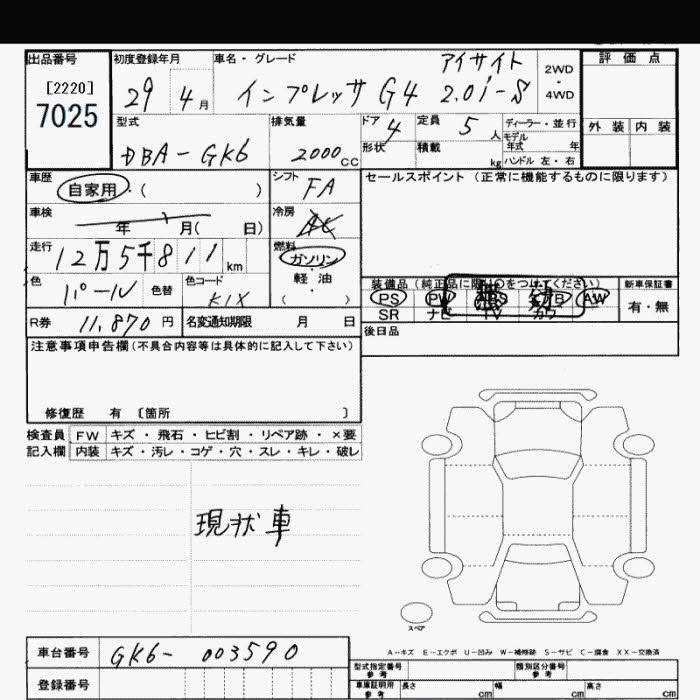 出品番号 初度登録年月 車名・グレード アイサイト 2WD・4WD 評価点
[2220]
7025
29 4月 インプレッサ G4 2.0i-S
型式 排気量 ドア 4 定員 5人 ディーラー・並行 外装 内装
DBA-GK6 2000cc 形状 積載 kg モデル年式 年
ハンドル 左・右
車歴 自家用・( ) シフト FA セールスポイント(正常に機能するものに限ります)
車検 年 月( 日) 冷房 AC
走行 12万5千811km 燃料 ガソリン・軽油( )
色 パール 色替 色コード K1X
装備品(純正品に限り○をつけてください) 新車保証書
PS PW AW 有・無
SR ナビ TV カワ
R券 11,870円 名変通知期限 月 日 後日品
注意事項申告欄(不具合内容等は具体的に記入して下さい)
修復歴 有 〔箇所 〕
検査員記入欄 FW キズ・飛石・ヒビ割・リペア跡・×要
内装 キズ・汚レ・コゲ・穴・スレ・キレ・破レ
現状車
スペア
A-キズ E-エクボ U-凹み W-補修跡 S-サビ C-腐食 XX-交換済
車台番号 GK6-003590
型式指定番号参考 類別区分番号参考
登録番号 車庫証明用参考 長さ cm 幅 cm 高さ cm